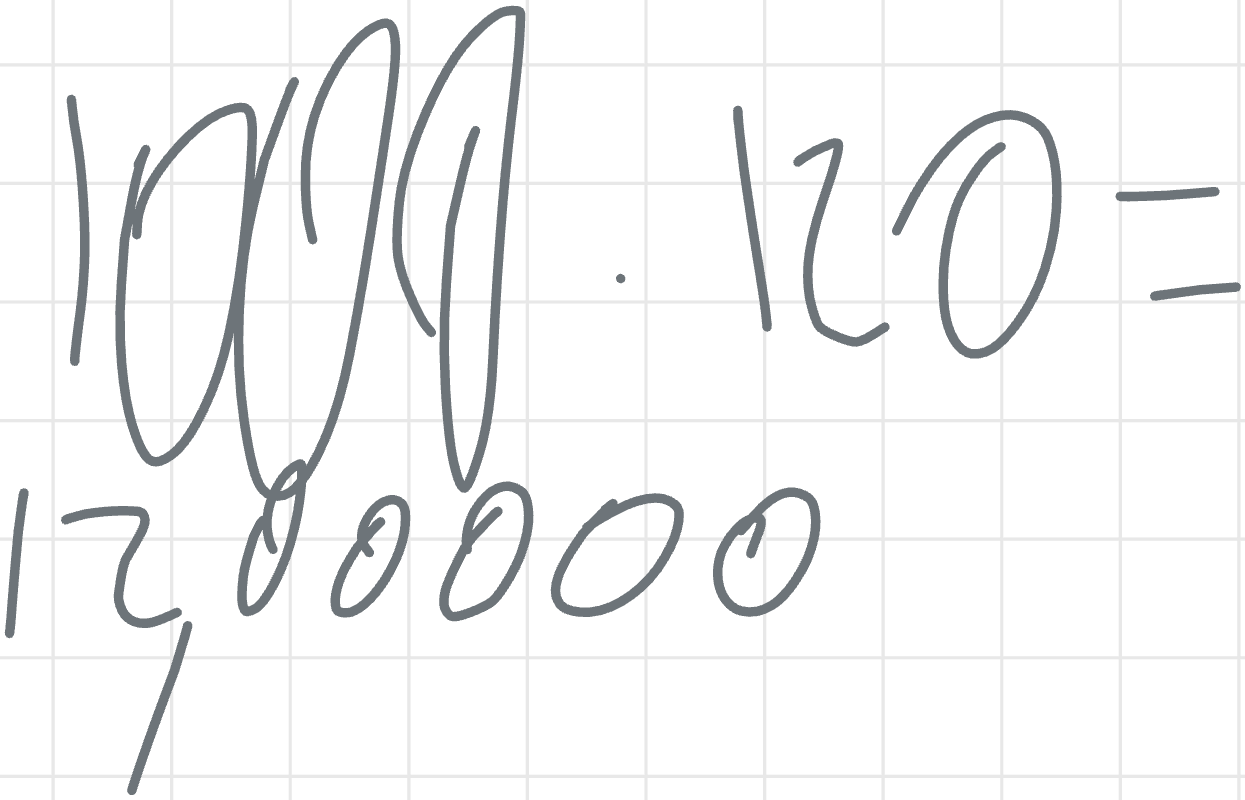 1000 · 120 =
12,00000